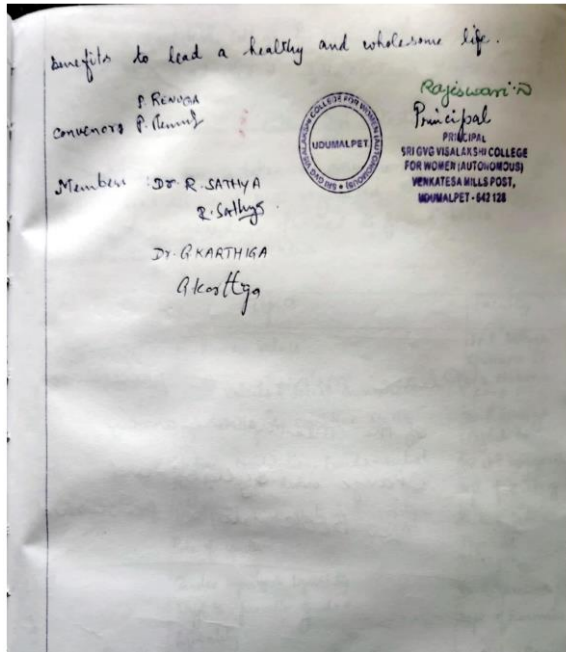 benefits to lead a healthy and wholesome life.
P. RENUGA
Convenors P. Renug
Members : Dr. R. SATHYA
R. Sathya
Dr. G KARTHIGA
G Karthiga
SRI GVG VISALAKSHI COLLEGE FOR WOMEN (AUTONOMOUS)
UDUMALPET
Rajeswari. D
Principal
PRINCIPAL
SRI GVG VISALAKSHI COLLEGE
FOR WOMEN (AUTONOMOUS)
VENKATESA MILLS POST,
UDUMALPET - 642 128